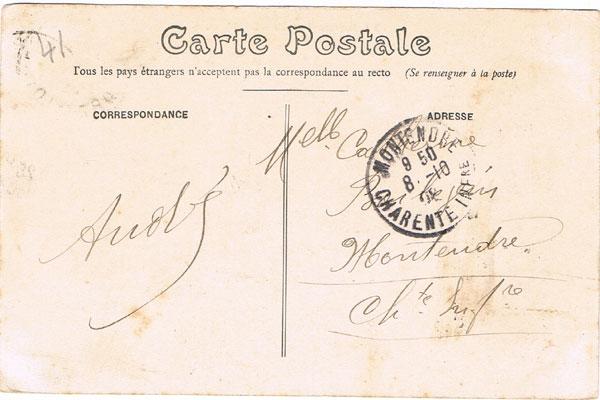 41
Carte Postale
Tous les pays étrangers n'acceptent pas la correspondance au recto (Se renseigner à la poste)
CORRESPONDANCE
André
ADRESSE
Melle
Montendre
Chte Infre
MONTENDRE
9 50
8 -10
CHARENTE INFRE